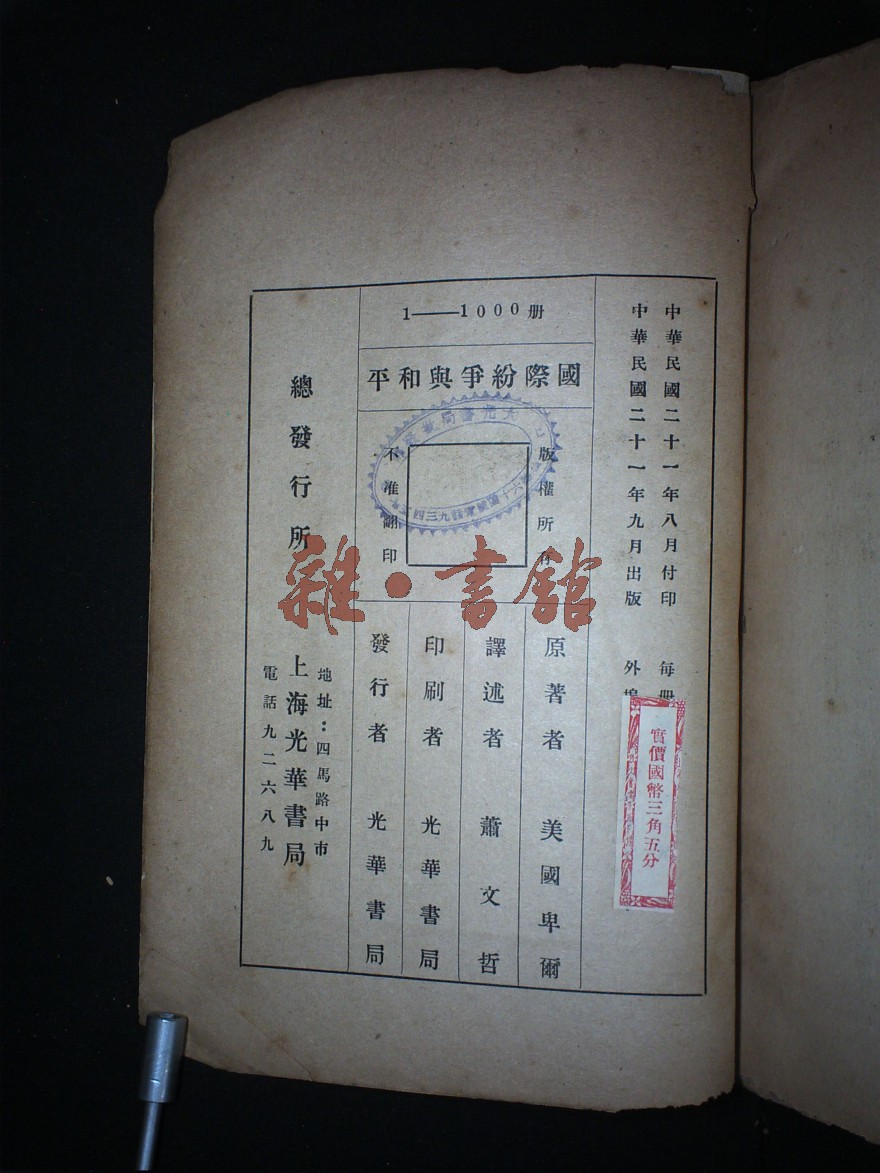 中華民國二十一年八月付印
中華民國二十一年九月出版
每册
外埠
實價國幣三角五分
1——1000册
國際紛爭與和平
版權所有
不准翻印
原著者 美國卑爾
譯述者 蕭文哲
印刷者 光華書局
發行者 光華書局
總發行所
地址：四馬路中市
上海光華書局
電話九二六八九
雜·書舘